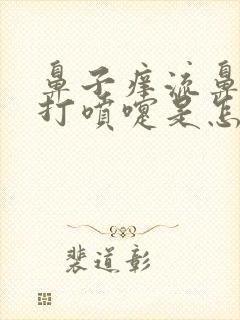 鼻子痒流鼻
打喷嚏是怎
裴道彰